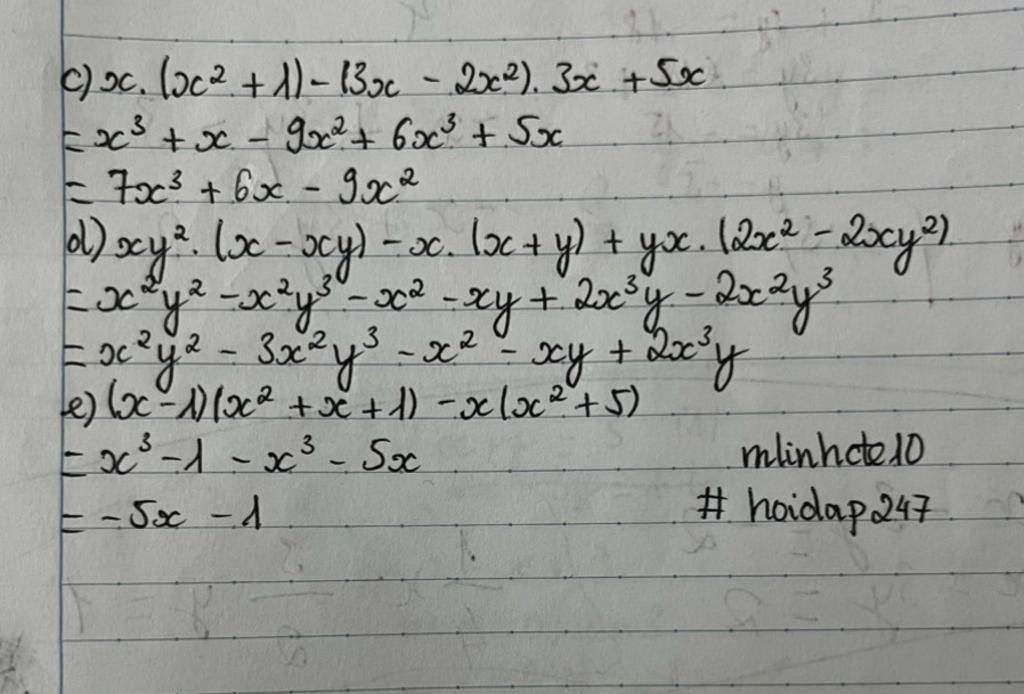 c) x.(x² + 1) - (3x - 2x²). 3x + 5x
= x³ + x - 9x² + 6x³ + 5x
= 7x³ + 6x - 9x²
d) xy². (x - xy) - x. (x + y) + yx. (2x² - 2xy²)
= x²y² - x²y³ - x² - xy + 2x³y - 2x²y³
= x²y² - 3x²y³ - x² - xy + 2x³y
e) (x - 1)(x² + x + 1) - x(x² + 5)
= x³ - 1 - x³ - 5x
mlinhcte10
= -5x - 1
# hoidap247